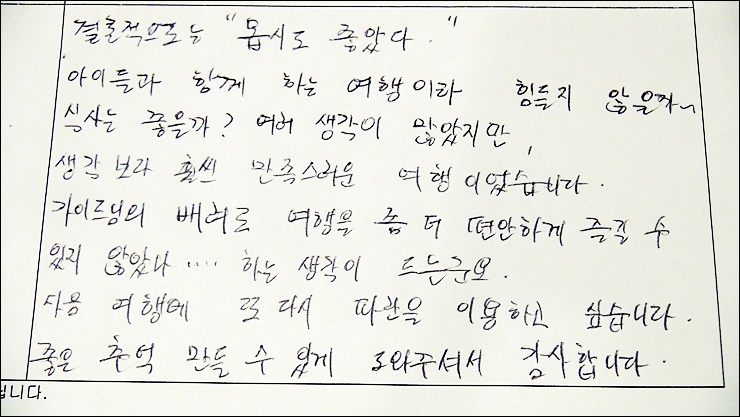 결론적으로는 "몹시도 좋았다."
아이들과 함께 하는 여행이라 힘들지 않을까~
식사는 좋을까? 여러 생각이 많았지만,
생각보다 훨씬 만족스러운 여행이었습니다.
가이드님의 배려로 여행을 좀 더 편안하게 즐길 수
있지 않았나.... 하는 생각이 드는군요.
다음 여행에 또 다시 을 이용하고 싶습니다.
좋은 추억 만들 수 있게 도와주셔서 감사합니다.
니다.